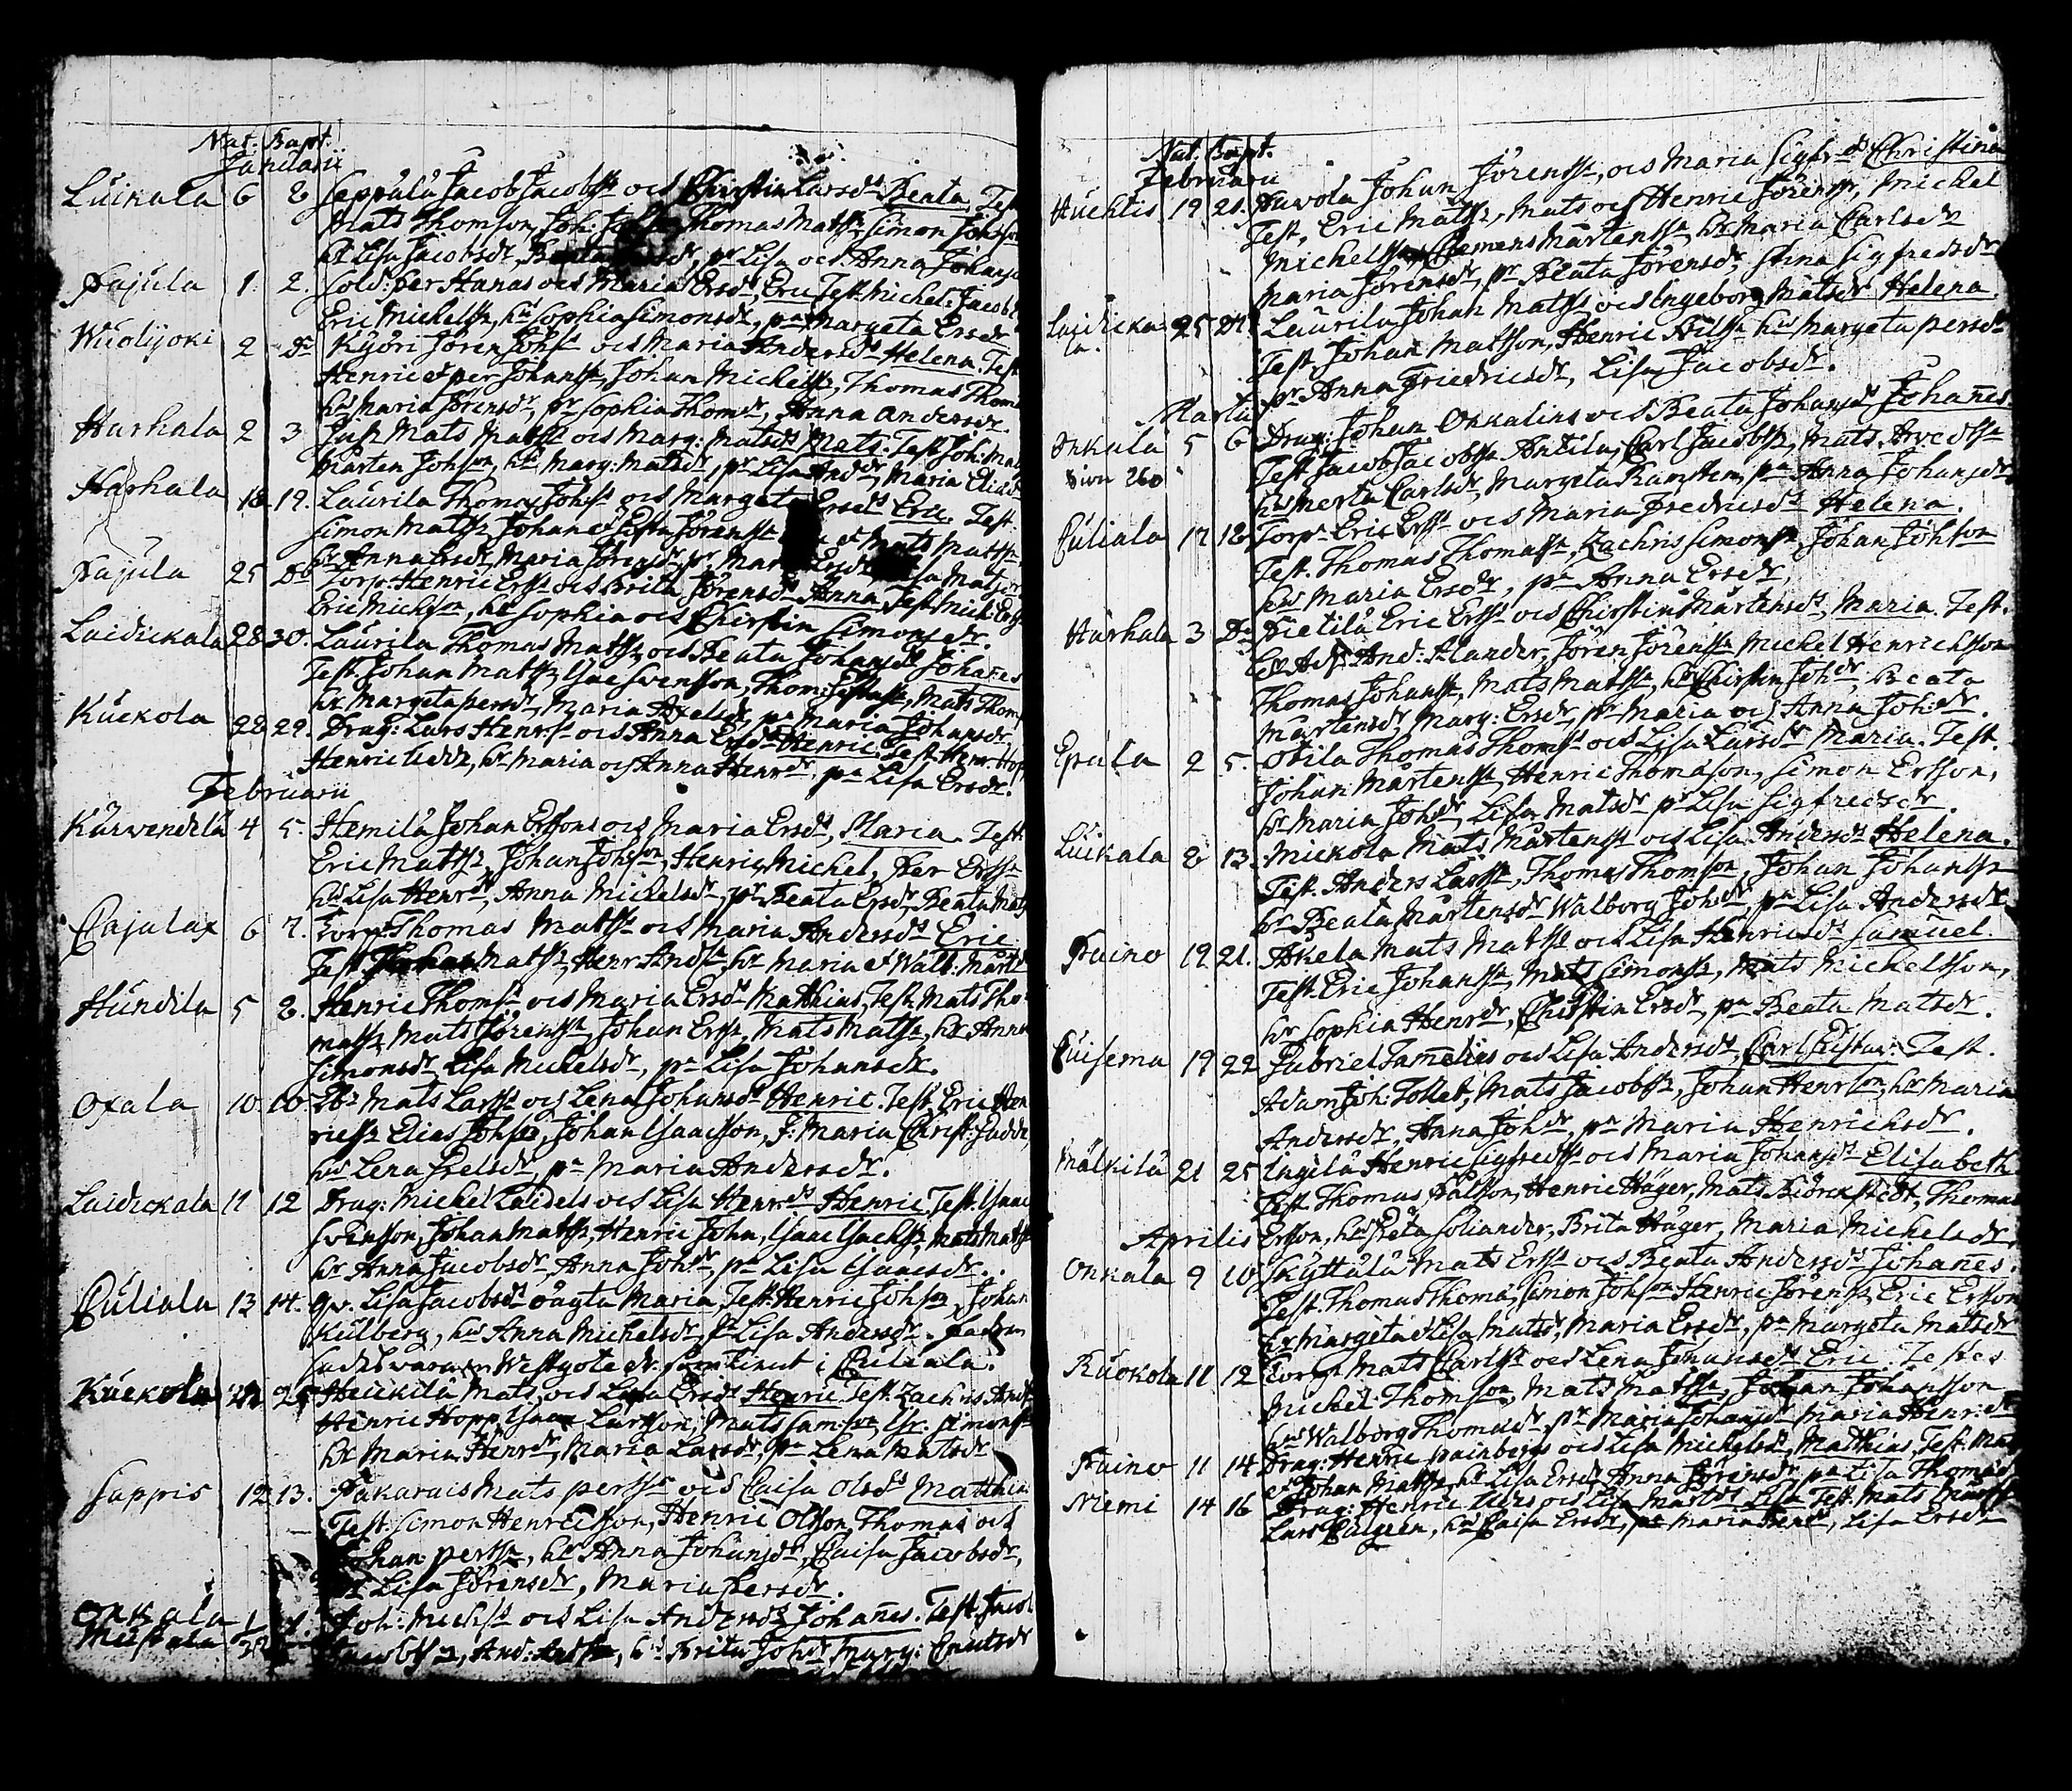 Nat. Bapt.
Januarii
Luikala 6 8 Seppälä Jacob Jacobss. och Chirstin Larsdr Beata. Test
Mats Thomson, Joh: Thomas Matss, Simon Johsson
hr Lisa Jacobsdr, Beata pr Lisa och Anna Johansd
Pajula 1. 2. Sold: Per Hanas och Maria Ersdr, Eric Test. Michel Jacobss
Eric Michelss, hu Sophia Simonsdr, pr Margeta Ersdr
Wuolijoki 2 Do Kyöri Jören Johss och Maria Andersdr Helena. Test
Henric et Per Johanss, Johan Michelss, Thomas Thom
hu Maria Jörensdr, pr Sophia Thomdr, Anna Andersdr.
Harhala 2 3 Mats Matss och Marg: Matsdr Mats. Test Joh: Mat
Mårten Johson, hu Marg: Matsdr, pr Lisa Anddr, Maria Eliæd
Harhala 18. 19. Laurila Thomas Johss och Margeta Ersdr Eric. Test.
Simon Matss Johan et Jörenss et Mats Matss
hr Anna Ersdr, Maria Jörensdr, pr. Mar Ersdr Lisa Matsdr
Pajula 25 Do Torp: Henric Erss och Brita Jörensdr Anna Test Mich: Erss
Eric Michson, hr Sophia och Chirstin Simonsdr.
Laidickala 28 30. Laurila Thomas Matss och Beata Johansdr Johañes
Test. Johan Matss, Isac Svensson, Thom: Mats Thom
hr Margeta Persdr, Maria Axelsdr, pr Maria Johansdr.
Kuckola 28 29. Drag: Lars Henrss och Anna Ersdr Henric Test. Henr: Hopp
Henric hr Maria och Anna Henrdr, pr Lisa Ersdr.
Februarii
Karwendila 4 5. Hemilä Johan Erssons och Maria Ersdr, Maria. Test.
Eric Matss, Johan Johsson, Henric, Michel, Per Erss
hu Lisa Henrdr, Anna Michelsdr, pr Beata Ersdr, Beata Mats
Cajulax 6 7. Torp: Thomas Matss och Maria Andersdr Eric
Test. Johan Matss, Henr. Andss. hr Maria et Walb: Mårtdr
Hundila 5 8. Henric Thomss. och Maria Ersdr Matthias, Test. Mats Tho-
mass, Mats Jörenss, Johan Erss, Mats Matss, hr Anna
Simonsdr, Lisa Michelsdr, pr Lisa Johansdr.
Oxala 10 10. Mats Larss och Lena Johansdr Henric. Test. Eric Hen
ricss, Elias Johss, Johan Isaacsson, J: Maria Christ:
hu Lena pr Maria Andersdr.
Laidickala 11 12 Drag: Michel Laidels och Lisa Henrdr Henric, Test. Isaac
Svensson, Johan Matss, Henric John, Isaac Isachss, Mats Matss
hr Anna Jacobsdr, Anna Johdr, pr Lisa Isaacsdr.
Culiala 13 14. Qv. Lisa Jacobsdr oägta Maria, Test. Henric Johss, Johan
Kulberg, hu Anna Michelsdr, pr Lisa Andersdr. Fadern
sades vara en Westgöte dr. som tient i Culiala.
Kuckola 24 25 Heickilä Mats och Lisa Ersdr Henric Test. Zachris Andss
Henric Hopp, Isaac Larsson, Mats Samson, Gr. Simonss
hr Maria Henrdr, Maria Larsdr, pr Lena Matsdr
Sappris 12 13. Pakarais Mats Perss och Caisa Olsdr Matthia
Test. Simon Henricsson, Henric Olsson, Thomas och
Johan Perss, hr Anna Johansdr, Caisa Jacobsdr,
Lisa Jörensdr, Maria Persdr.
Onkala
Mustala Joh: Michss och Lisa Andersdr Johañes. Test. Jacob
Jacobss, And: Andss, hu Brita Johdr Marg: Cnutsdr
Nat. Bapt.
Februarii
Huchtis 19 21. Johan Jörenss, och Maria Sigfrdr Christina
Test. Eric Matss, Mats och Henric Jörenss, Michel
Michelss, Clemens Mårtenss, hr Maria Carlsdr
Maria Jörensdr, pr Beata Jörensdr, Stina Sigfredsdr
Laidicka
la. 25 Laurila Johan Matss och Ingeborg Matsdr Helena.
Test. Johan Matsson, Henric Nilss hu Margeta Persdr
pr Anna Friedricsdr, Lisa Jacobsdr.
Martii
Onkala 5 6 Drag: Johan Onkalin och Beata Johansdr Johañes
Test. Jacob Jacobss Antila, Carl Jacobss, Mats Arvedss
hu Merta Carlsdr, Margeta pr Anna Johansdr.
Culiala 17 18 Torp: Eric Erss och Maria Fredricsdr Helena.
Test. Thomas Thomass, Zachris Simonss Johan Johson
hu Maria Ersdr, pr Anna Ersdr,
Harhala 3 Do Pietilä Eric Erss och Chirstin Mårtensdr, Maria. Test.
And: Alander, Jören Jörenss Michel Henrichson
Thomas Johanss, Mats Matss, hr Chirstin Johdr, Beata
Mårtensdr, Marg: Ersdr, pr Maria och Anna Johdr.
Epala 2 5. Otila Thomas Thomss och Lisa Larsdr Maria. Test.
Johan Mårtenss, Henric Thomasson, Simon Ersson,
hr Maria Johdr, Lisa Matsdr pr Lisa Sigfredsdr.
Luikala 8 13. Mickola Mats Mårtenss och Lisa Andersdr Helena.
Test. Anders Larss, Thomas Thomson, Johan Johanss
hr Beata Mårtensdr Walborg Johdr, pr Lisa Andersdr
Paino 19 21. Äkelä Mats Matss och Lisa Henricsdr Samuel.
Test. Eric Johanss, Mats Simonss, Mats Michelsson,
hr Sophia Henrdr, Chirstin Ersdr, pr Beata Matsdr.
Cuisema 19 22 Gabriel Tamelius och Lisa Andersdr Carl Gustav. Test.
Adam Joh: Tollet, Mats Jacobss, Johan Henrson, hr Maria
Andersdr, Anna Johdr, pr Maria Henrichsdr.
Mälkilä 21 25 Ingilä Henric Sigfredss och Maria Johansdr Elisabeth
Test. Thomas Pålson, Henric Häger, Mats Biörckstedt, Thomas
Ersson, hu Greta Soliander, Brita Häger, Maria Michelsdr.
Aprilis
Onkala 9 10 Skyttälä Mats Erss och Beata Andersdr Johañes.
Test. Thomas Thomas, Simon Johson Henric Jörenss, Eric Ersson
hr Margeta et Lisa Matsdr, Maria Ersdr, pr Margeta Matsdr
Kuckola 11 12 Torp: Mats Carlss och Lena Johansdr Eric. Testes
Michel Thomson, Mats Matss, Johan Johansson
hu Walborg Thomasdr, pr Maria Johansdr Maria Henricdr
Paino 11 14 Drag: Henric Painbergs och Lisa Michelsdr, Matthias, Test. Mats
et Johan Matss, hr Lisa Ersdr Anna Jörensdr, pr Lisa Thomasd
Niemi 14 16 Drag: Henric och Lisa Mårtdr Lisa Test. Mats Mårtss
Lars hu Caisa Ersdr, pr Maria Lisa Ersdr